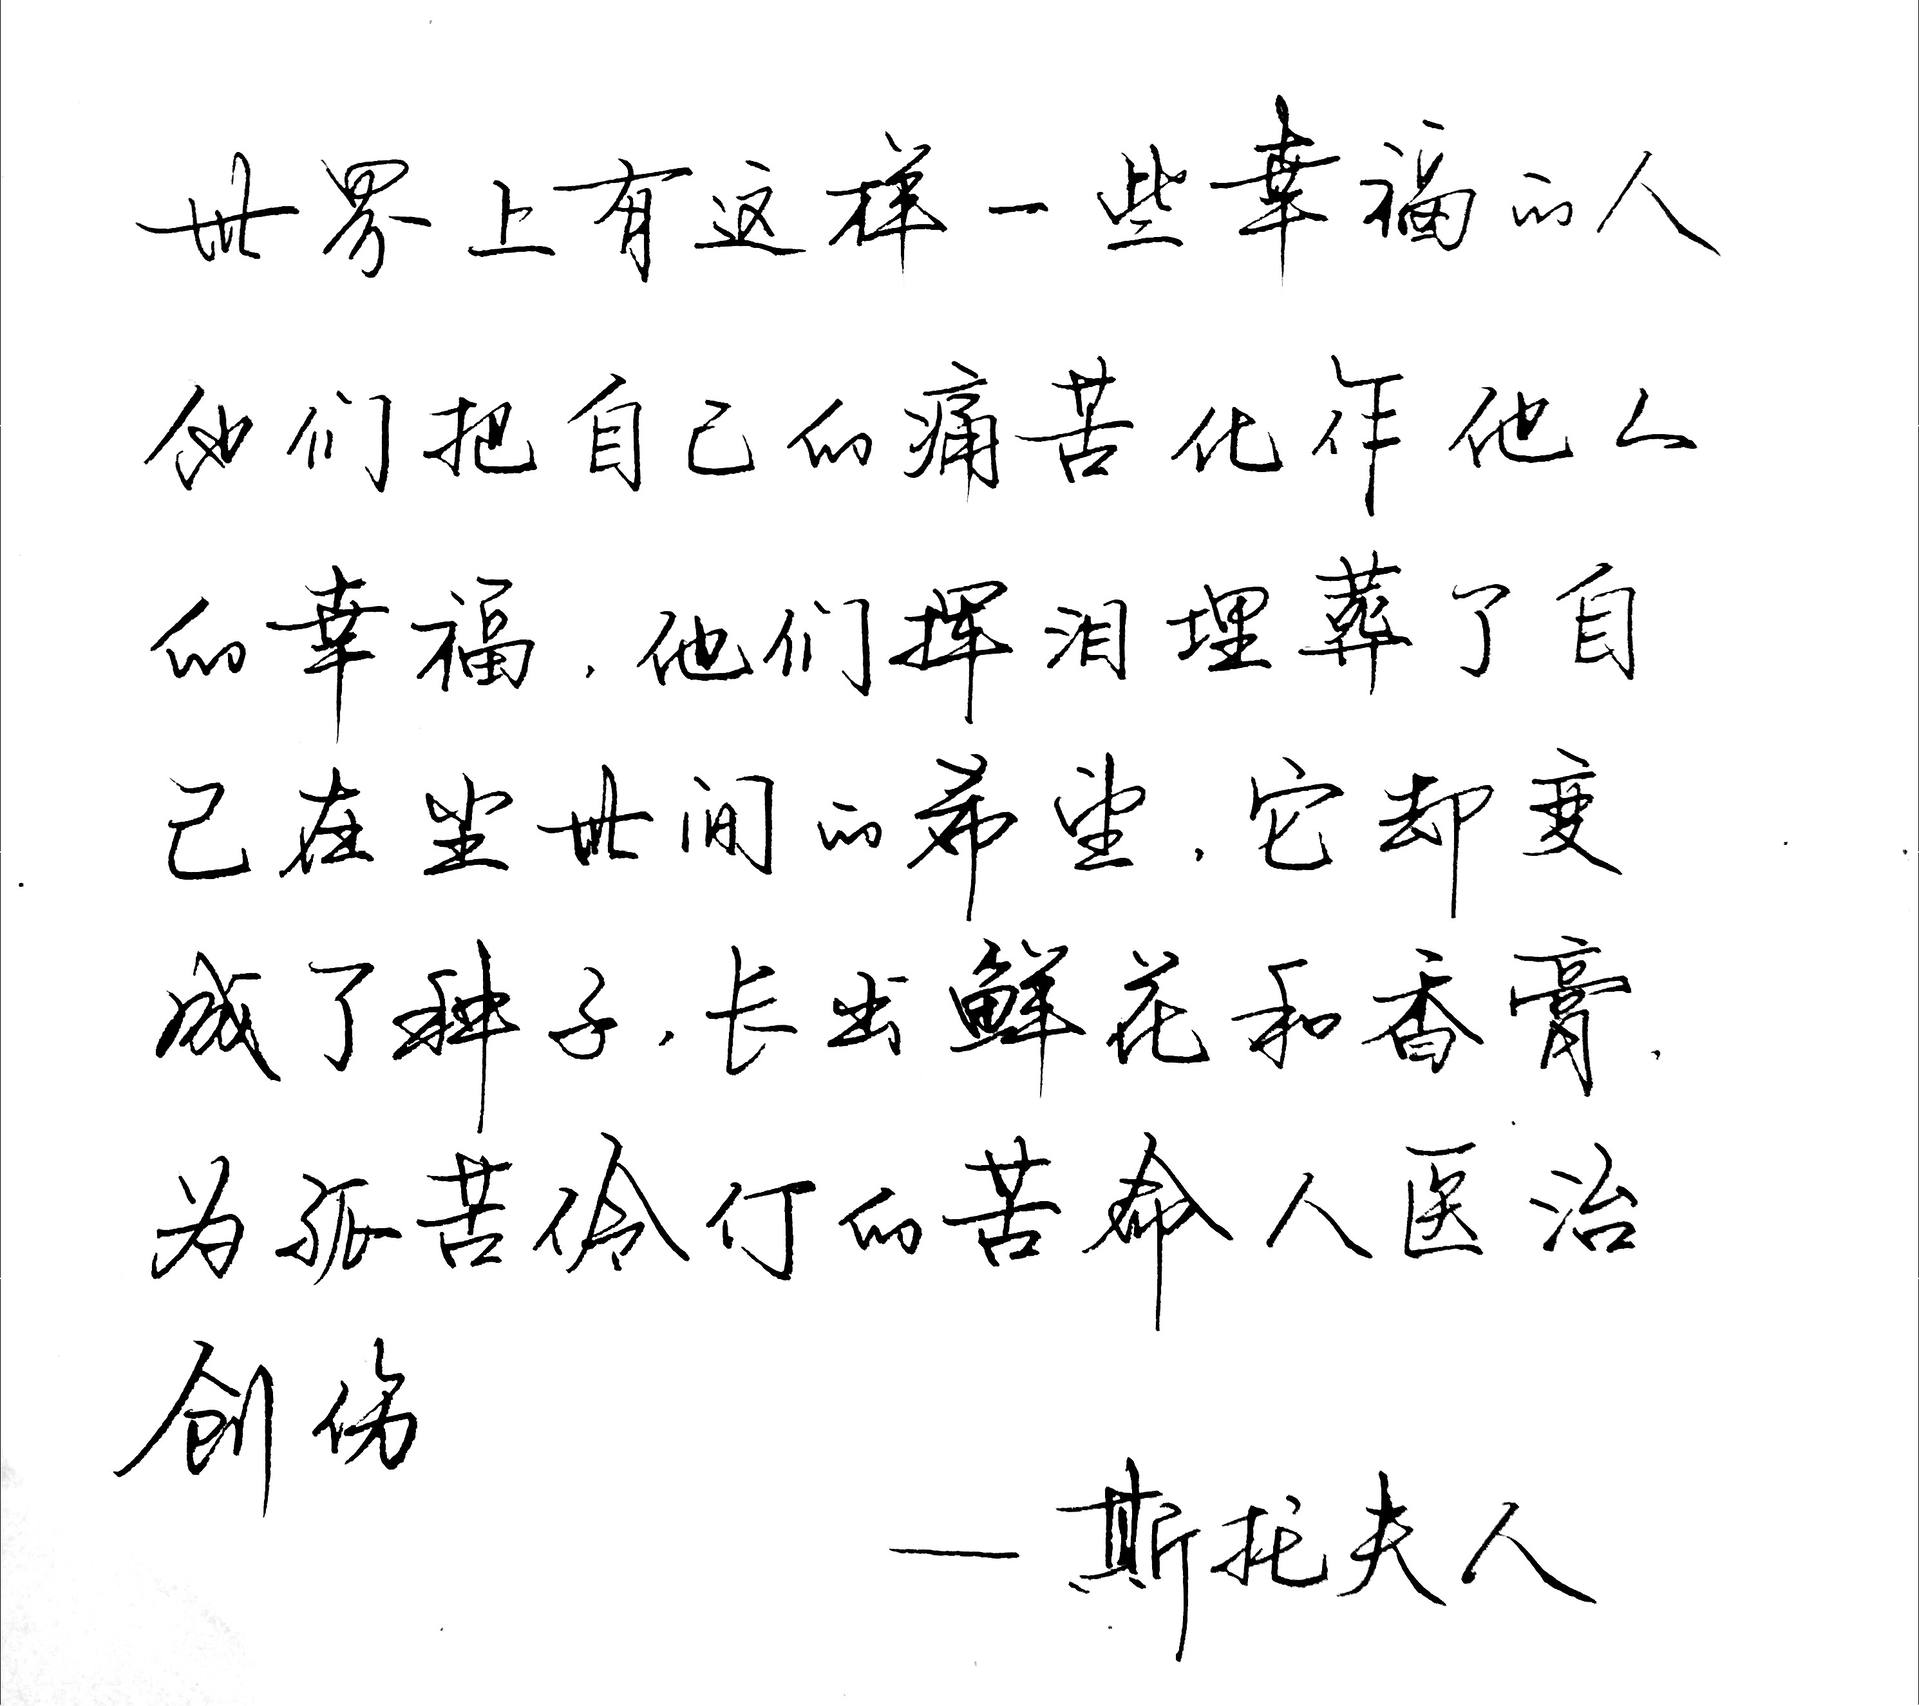 世界上有这样一些幸福的人
他们把自己的痛苦化作他人
的幸福,他们挥泪埋葬了自
己在尘世间的希望,它却变
成了种子,长出鲜花和香膏,
为孤苦伶仃的苦命人医治
创伤
—斯托夫人